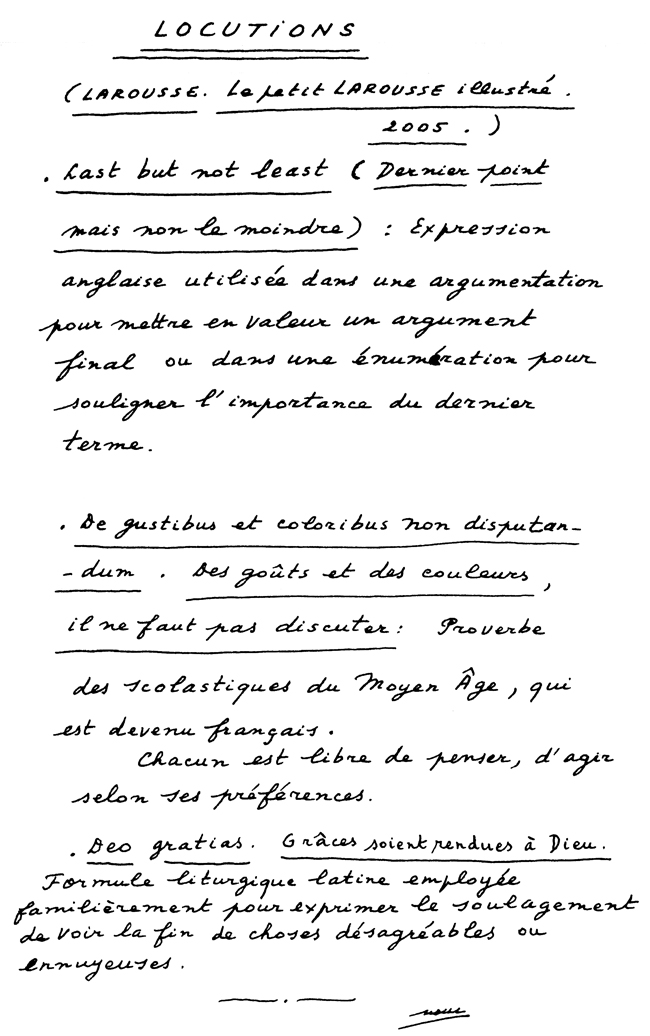 LOCUTIONS
(LAROUSSE. Le petit LAROUSSE illustré.
2005.)
. Last but not least (Dernier point
mais non le moindre) : Expression
anglaise utilisée dans une argumentation
pour mettre en valeur un argument
final ou dans une énumération pour
souligner l'importance du dernier
terme.
. De gustibus et coloribus non disputan-
-dum. Des goûts et des couleurs,
il ne faut pas discuter : Proverbe
des scolastiques du Moyen Âge, qui
est devenu français.
Chacun est libre de penser, d'agir
selon ses préférences.
. Deo gratias. Grâces soient rendues à Dieu.
Formule liturgique latine employée
familièrement pour exprimer le soulagement
de voir la fin de choses désagréables ou
ennuyeuses.